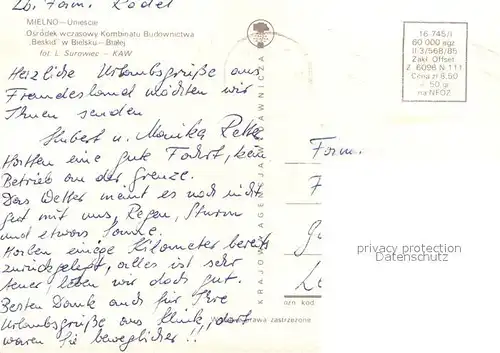 Lb. Fam. Rödel
MIELNO-Unieście
Ośrodek wczasowy Kombinatu Budownictwa
„Beskid" w Bielsku-Białej
fot. L. Surowiec - KAW
16-745/I
60 000 egz
II-3/568/85
Zakł. Offset
Z. 6098 N 111
Cena zł 8,50
+ 50 gr
na NFOZ
Herzliche Urlaubsgrüße aus
Freundesland möchten wir
Ihnen senden
Hubert u. Monika
Hatten eine gute Fahrt, kein
Betrieb an der Grenze.
Das Wetter meint es noch nicht
gut mit uns, Regen, Sturm
und etwas Sonne.
Haben einige Kilometer bereits
zurückgelegt, alles ist sehr
teuer, leben wir doch gut.
Besten Dank auch für Ihre
Urlaubsgrüße aus Klink, dort
waren Sie beweglicher!!
KRAJOWA AGENCJA WYDAWNICZA
Fam.
ozn. kod
zastrzeżone
privacy protection
Datenschutz